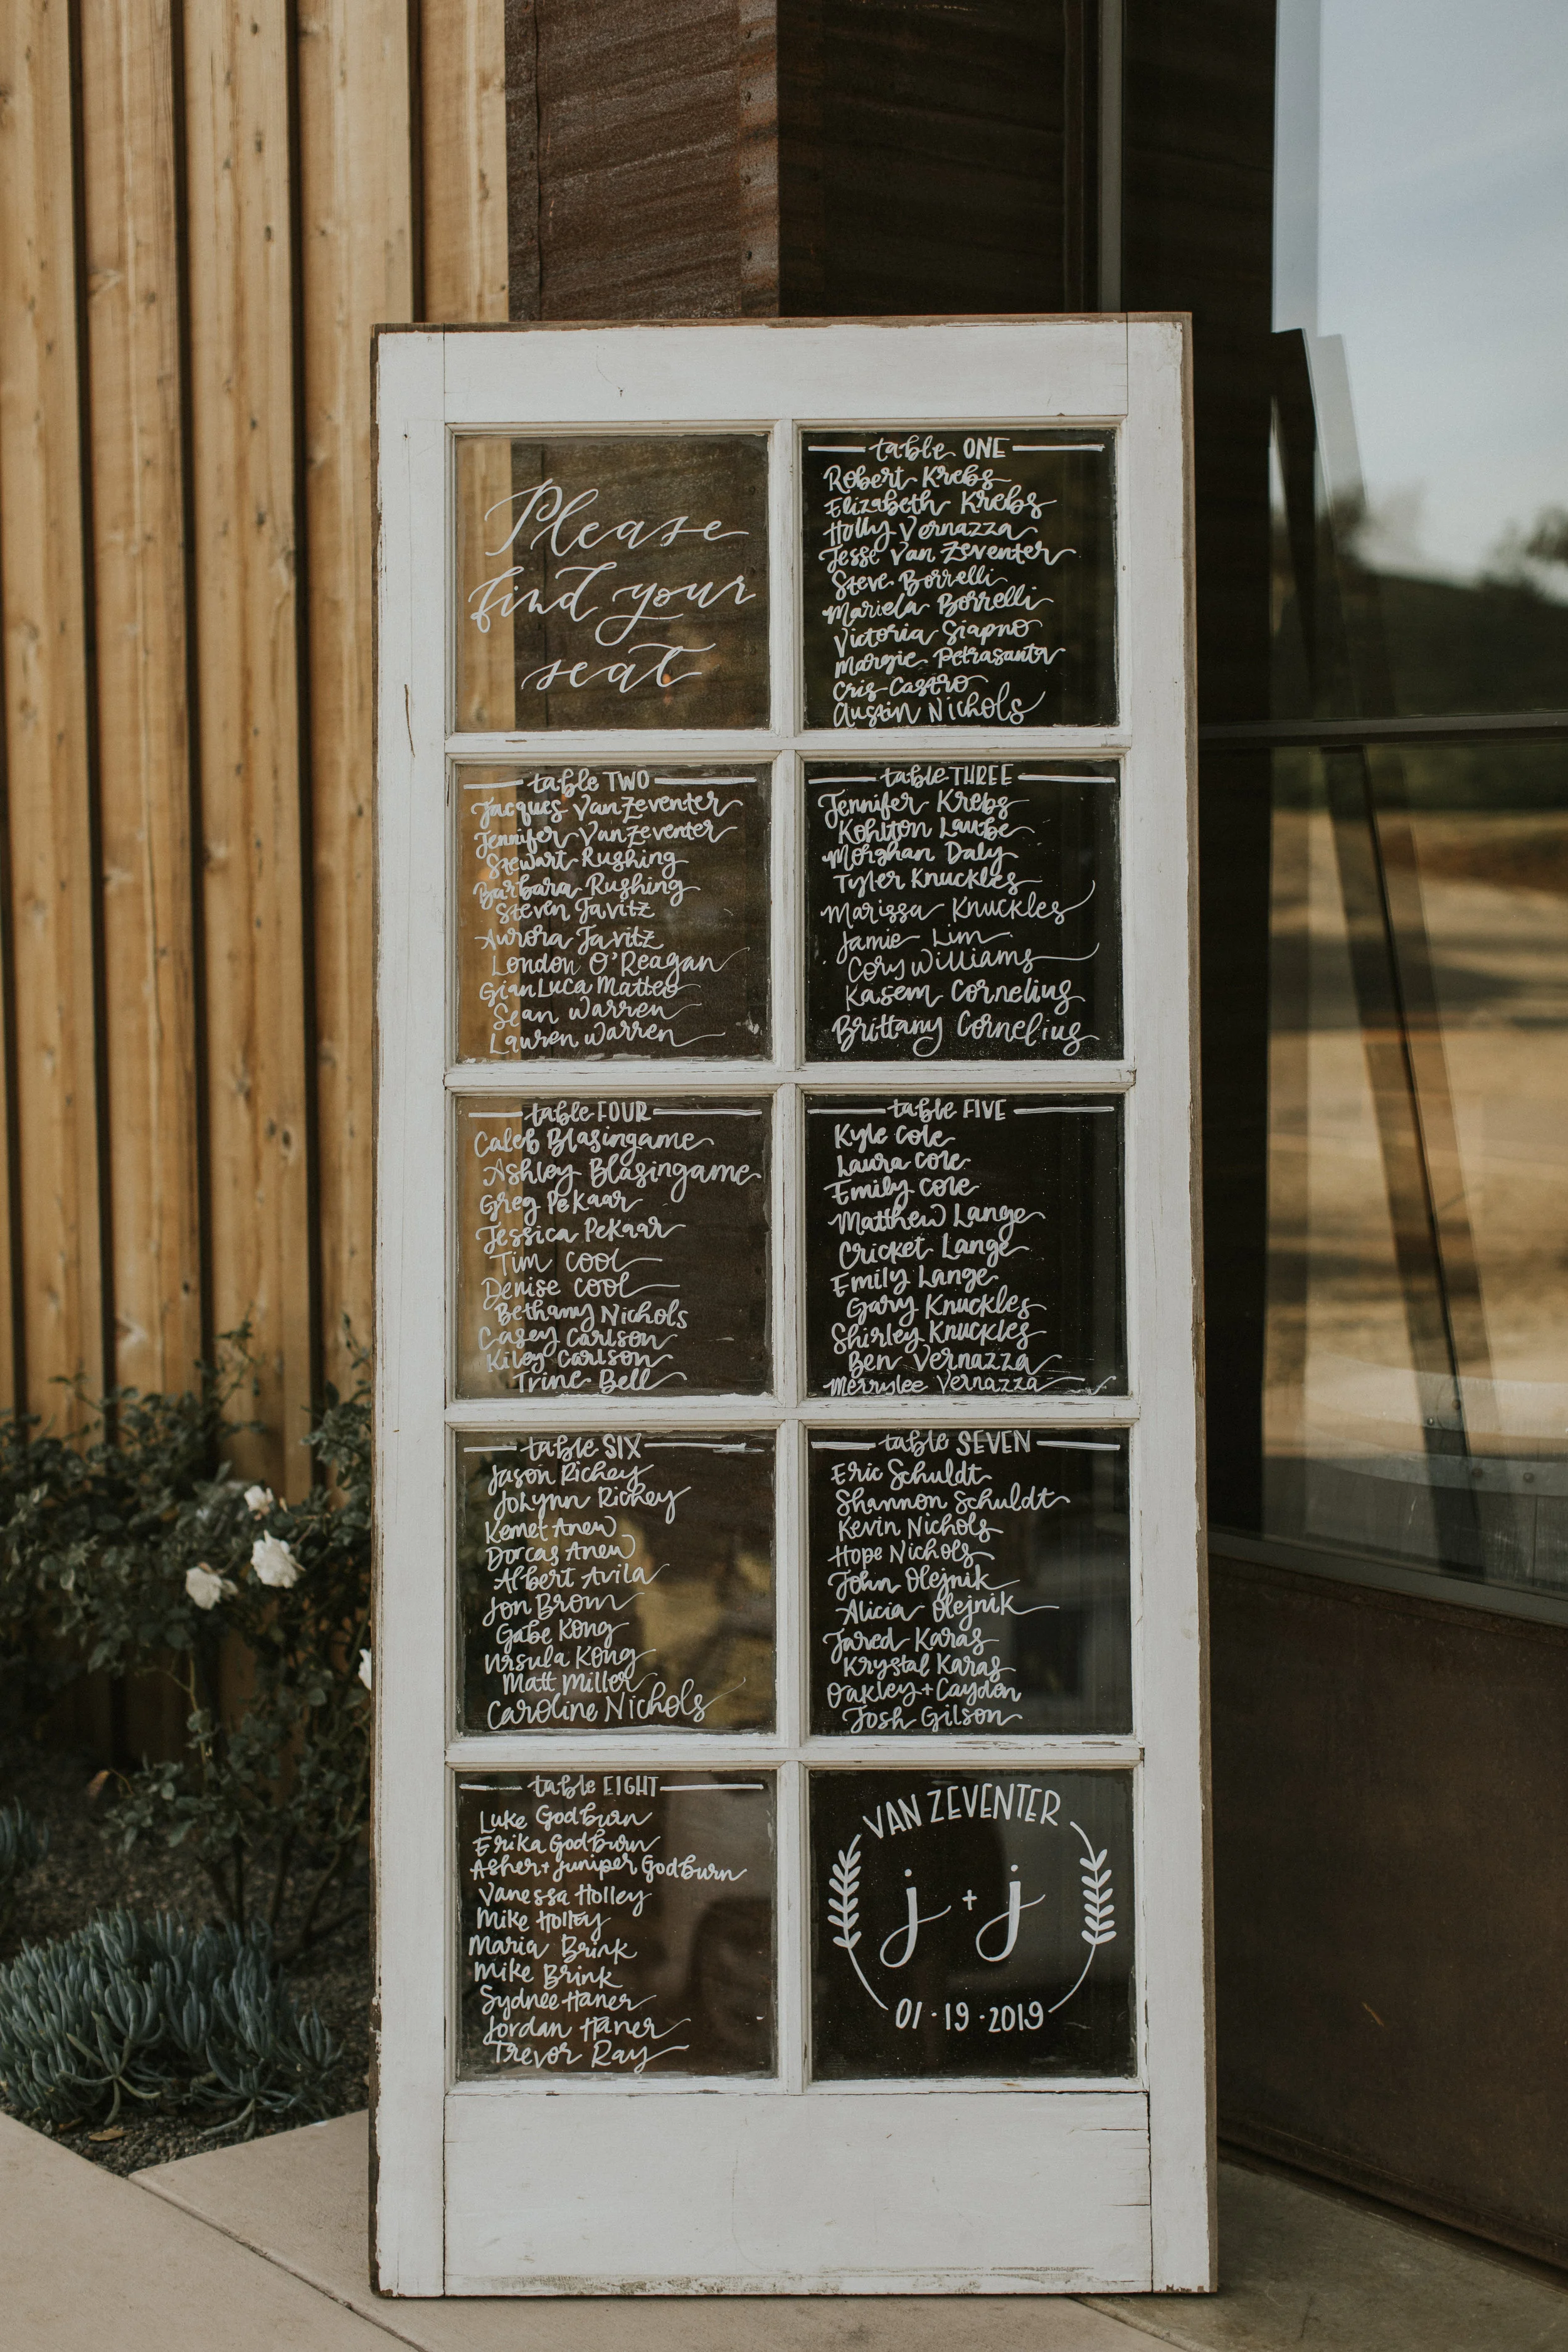 Please
find your
seat
table ONE
Robert Krebs
Elizabeth Krebs
Holly Vernazza
Jesse Van Zeventer
Steve Borrelli
Mariela Borrelli
Victoria Siapno
Margie Petrasanta
Cris Castro
Austin Nichols
table TWO
Jacques VanZeventer
Jennifer VanZeventer
Stewart Rushing
Barbara Rushing
Steven Javitz
Aurora Javitz
London O'Reagan
GianLuca Matteo
Sean Warren
Lauren Warren
table THREE
Jennifer Krebs
Kohlton Laube
Morghan Daly
Tyler Knuckles
Marissa Knuckles
Jamie Lim
Cory Williams
Kasem Cornelius
Brittany Cornelius
table FOUR
Caleb Blasingame
Ashley Blasingame
Greg PeKaar
Jessica PeKaar
Tim Cool
Denise Cool
Bethany Nichols
Casey Carlson
Kiley Carlson
Trine Bell
table FIVE
Kyle Cole
Laura Cole
Emily Cole
Matthew Lange
Cricket Lange
Emily Lange
Gary Knuckles
Shirley Knuckles
Ben Vernazza
Merrylee Vernazza
table SIX
Jason Richey
JoLynn Richey
Kemet Anew
Dorcas Anew
Albert Avila
Jon Brom
Gabe Kong
Ursula Kong
Matt Miller
Caroline Nichols
table SEVEN
Eric Schuldt
Shannon Schuldt
Kevin Nichols
Hope Nichols
John Olejnik
Alicia Olejnik
Jared Karas
Krystal Karas
Oakley + Cayden
Josh Gilson
table EIGHT
Luke Godburn
Erika Godburn
Asher + Juniper Godburn
Vanessa Holley
Mike Holley
Maria Brink
Mike Brink
Sydnee Haner
Jordan Haner
Trevor Ray
VAN ZEVENTER
j + j
01 · 19 · 2019